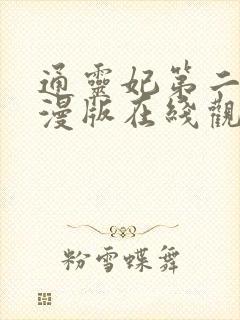 通靈妃第二
漫版在綫觀
粉雪蝶舞